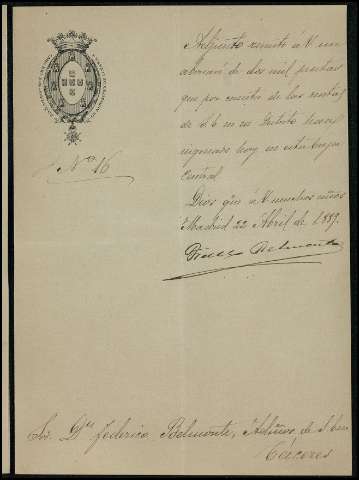 Nº 16
Adjunto remito á V. un
abonaré de dos mil pesetas
que por cuenta de las rentas
de S. E. en su Distrito han
ingresado hoy en esta Caja
Central.
Dios gue á V. muchos años
Madrid 22 Abril de 1889.
Belmonte
Sor. Dn. Federico Belmonte, Admor. de S. E. en
Cáceres